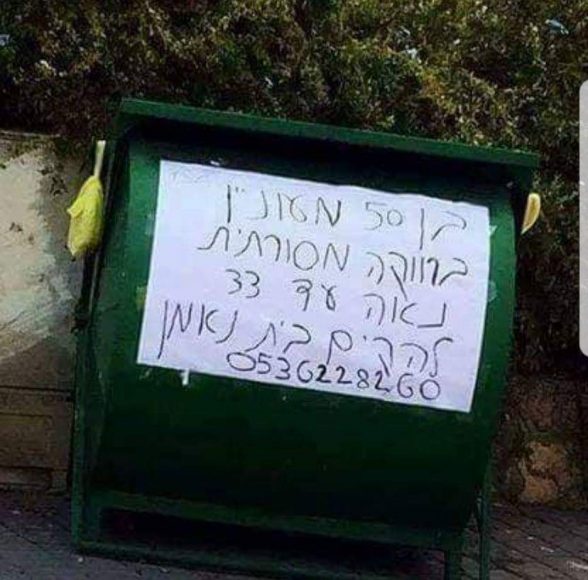 בן 50 מעונין
ברווקה מסורתית
נאה עד 33
להקים בית נאמן
0536228260